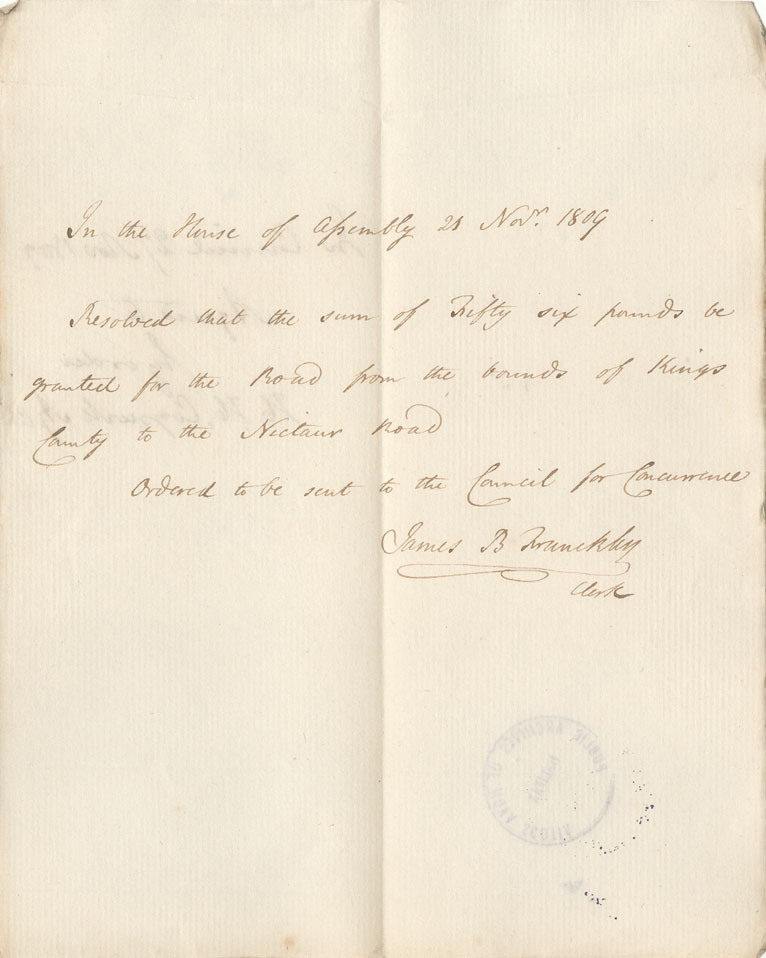 In the House of Assembly 21 Novr. 1809
Resolved that the sum of Fifty six pounds be
granted for the Road from the bounds of Kings
County to the Nictaur Road
Ordered to be sent to the Council for Concurrence
James B Franckly
Clerk
PUBLIC ARCHIVES OF NOVA SCOTIA